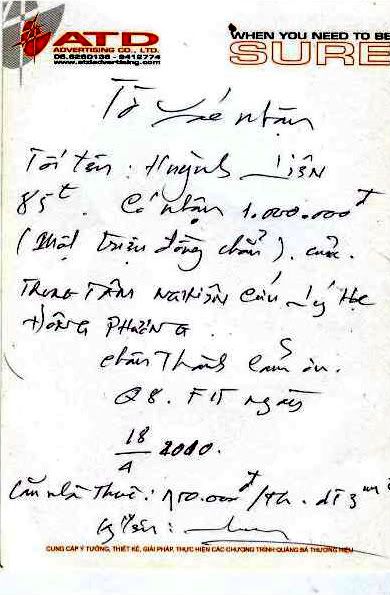 ATD
ADVERTISING CO., LTD.
www.atdadvertising.com
WHEN YOU NEED TO BE
SURE
Tờ xác nhận
Tôi tên : Huỳnh Liên
85t. Có nhận 1.000.000đ
(Một triệu đồng chẵn). của.
TRUNG TÂM NGHIÊN Cứu Lý Học
ĐÔNG PHƯƠNG
chân Thành Cảm ơn.
Q8. F15 ngày
18/4 2010.
Căn nhà Thuê : 750.000đ/th. dt 3m
Ký tên :
CUNG CẤP Ý TƯỞNG, THIẾT KẾ, GIẢI PHÁP, THỰC HIỆN CÁC CHƯƠNG TRÌNH QUẢNG BÁ THƯƠNG HIỆU